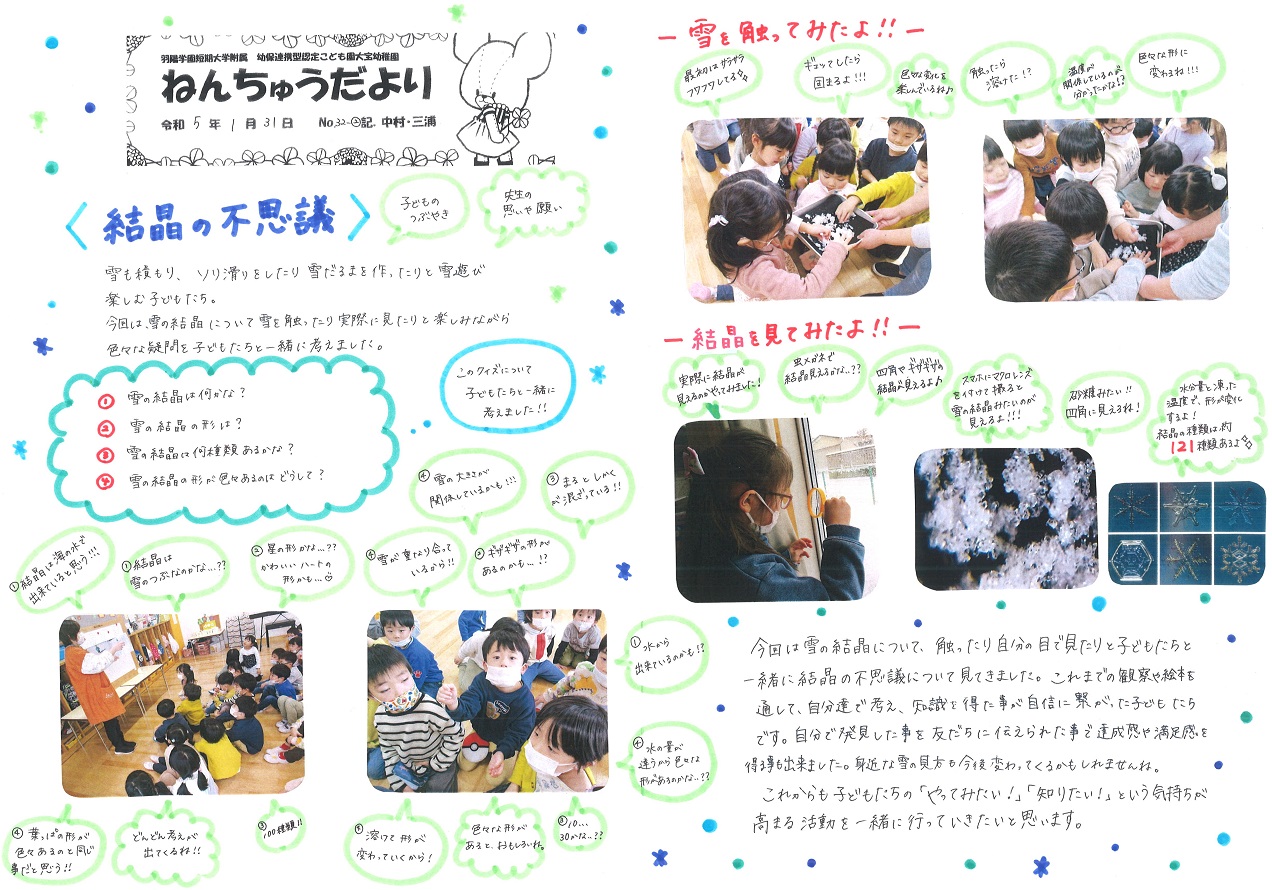 羽陽学園短期大学附属 幼保連携型認定こども園大宝幼稚園
ねんちゅうだより
令和 5 年 1 月 31 日 No.32-④記. 中村・三浦
〈 結晶の不思議 〉
子どもの
つぶやき
先生の
思いや願い
雪も積もり、ソリ滑りをしたり雪だるまを作ったりと雪遊び
楽しむ子どもたち。
今回は、雪の結晶について雪を触ったり実際に見たりと楽しみながら
色々な疑問を子どもたちと一緒に考えました。
このクイズについて
子どもたちと一緒に
考えました!!
① 雪の結晶は何かな?
② 雪の結晶の形は?
③ 雪の結晶は何種類あるかな?
④ 雪の結晶の形が色々あるのはどうして?
④ 雪の大きさが
関係しているかも!!!
③ まるとしかく
が混ざっている!!
①結晶は海の水で
出来ていると思う!!!
①結晶は
雪のつぶなのかな...??
②星の形かな...??
かわいいハートの
形かも...
④雪が重なり合って
いるから!!
②ギザギザの形が
あるのかも...!?
④ 葉っぱの形が
色々あるのと同じ
事だと思う!!
どんどん考えが
出てくるね!!
③
100種類!!
④ 溶けて形が
変わっていくから!
色々な形が
あると、おもしろいね。
③10...
30かな..??
ー 雪を触ってみたよ!! ー
最初はサラサラ
フワフワしてる
ギュッてしたら
固まるよ!!!
色々な変化を
楽しんでいるね♪
触ったら
溶けた!?
温度が
関係しているのが
分かったかな!?
色々な形に
変わるね!!!
ー 結晶を見てみたよ!! ー
実際に結晶が
見えるのかやってみました!
虫メガネで
結晶見えるかな..??
四角やギザギザの
結晶が見えるよ♪
スマホにマクロレンズ
を付けて撮ると
雪の結晶みたいのが
見えるよ!!!
砂糖みたい!!
四角に見えるね!
水分量と凍った
温度で、形が変化
するよ!
結晶の種類は約
121種類あるよ
① 水から
出来ているのかも!?
④ 水の量が
違うから色々な
形があるのかな..??
今回は雪の結晶について、触ったり自分の目で見たりと子どもたちと
一緒に結晶の不思議について見てきました。これまでの観察や絵本を
通して、自分達で考え、知識を得た事が自信に繋がった子どもたち
です。自分で発見した事を友だちに伝えられた事で達成感や満足感を
得る事も出来ました。身近な雪の見方も今後変わってくるかもしれませんね。
これからも子どもたちの「やってみたい!」「知りたい!」という気持ちが
高まる活動を一緒に行っていきたいと思います。